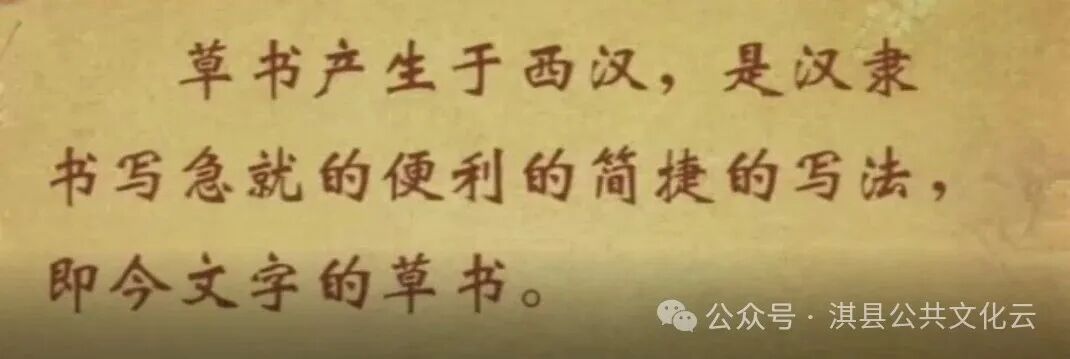 草书产生于西汉，是汉隶
书写急就的便利的简捷的写法，
即今文字的草书。
公众号·淇县公共文化云